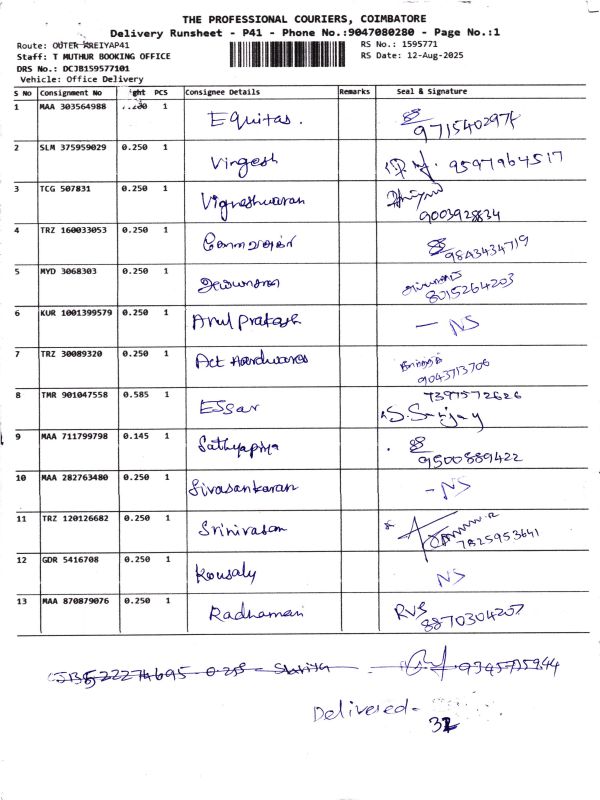 THE PROFESSIONAL COURIERS, COIMBATORE
Delivery Runsheet - P41 - Phone No.:9047080280 - Page No.:1
Route: OUTER AREIYAP41 RS No.: 1595771
Staff: T MUTHUR BOOKING OFFICE RS Date: 12-Aug-2025
DRS No.: DCJB159577101
Vehicle: Office Delivery
S No Consignment No ght PCS Consignee Details Remarks Seal & Signature
1 MAA 303564988 1 Equitas. 9715402974
2 SLM 375959029 0.250 1 Vingesh 9597964517
3 TCG 507831 0.250 1 Vigneshwaran 9003928834
4 TRZ 160033053 0.250 1 98A3434719
5 MYD 3068303 0.250 1 8015264203
6 KUR 1001399579 0.250 1 Arul Prakash - NS
7 TRZ 30089320 0.250 1 Act Hardwares 9043713706
8 TMR 901047558 0.585 1 Essar 7397572626
S. Sanjay
9 MAA 711799798 0.145 1 Sathyapriya 9500889422
10 MAA 282763480 0.250 1 Sivasankaran - NS
11 TRZ 120126682 0.250 1 Srinivasan 7825953641
12 GDR 5416708 0.250 1 Kousaly NS
13 MAA 870879076 0.250 1 Radhamani RVS
8870304207
Delivered -